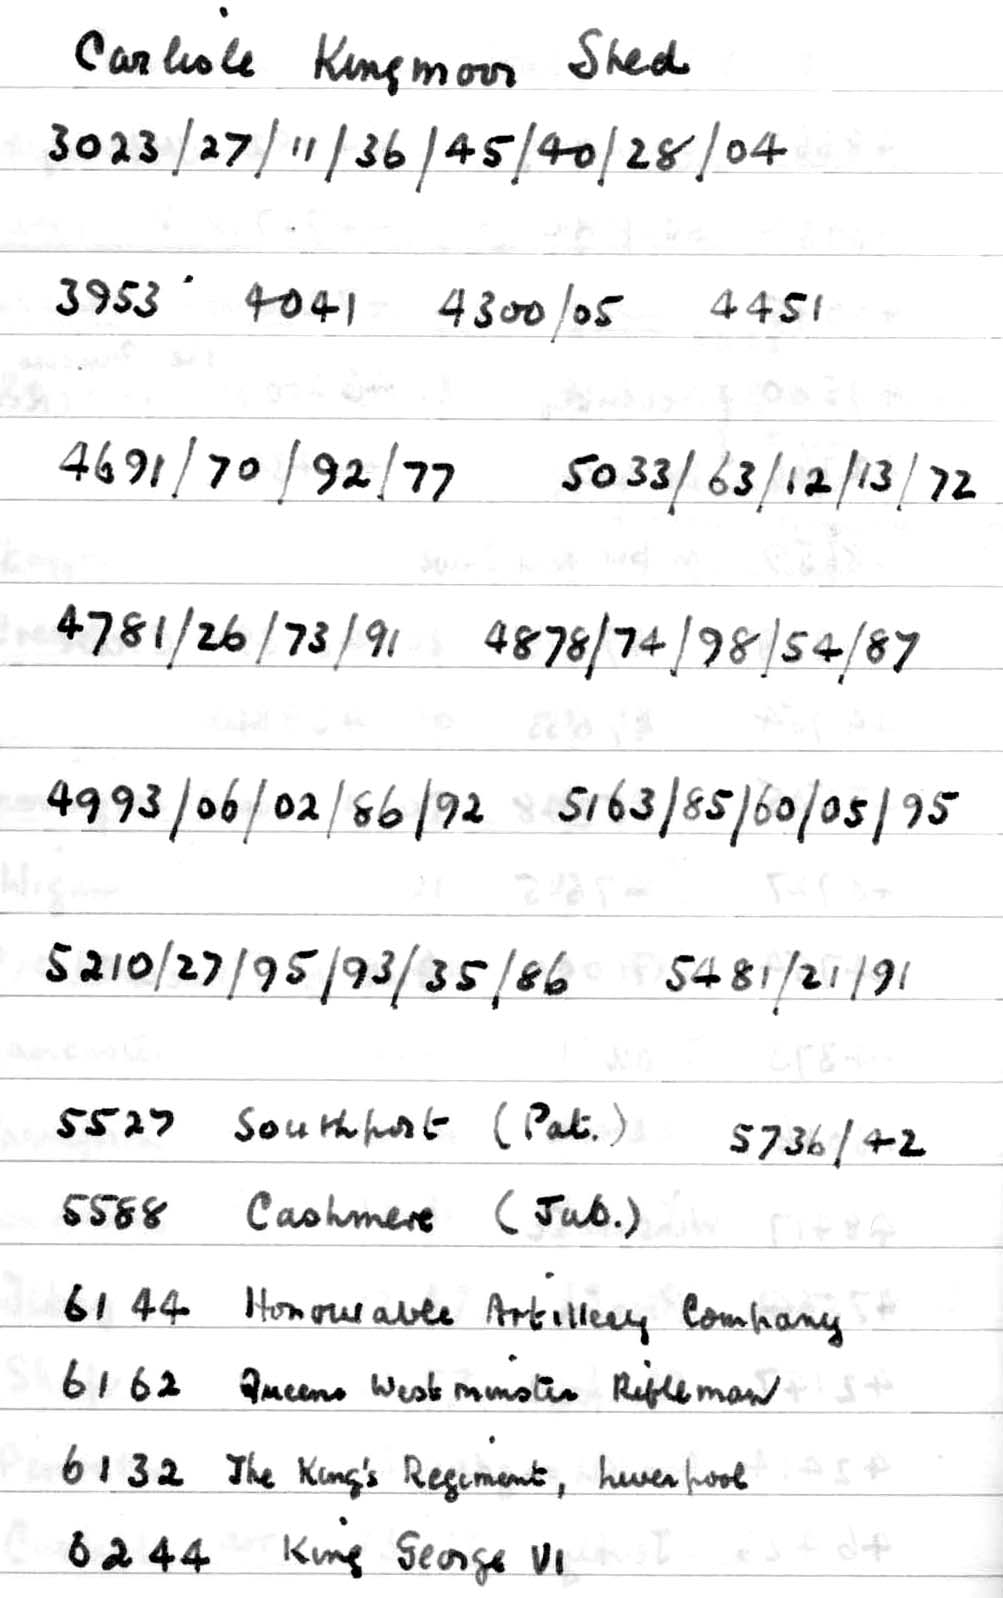 Carlisle Kingmoor Shed
3023/27/11/36/45/40/28/04
3953 4041 4300/05 4451
4691/70/92/77 5033/63/12/13/72
4781/26/73/91 4878/74/98/54/87
4993/06/02/86/92 5163/85/60/05/95
5210/27/95/93/35/86 5481/21/91
5527 Southport (Pat.) 5736/42
5588 Cashmere (Jub.)
6144 Honourable Artillery Company
6162 Queens Westminster Rifleman
6132 The King's Regiment, Liverpool
6244 King George VI